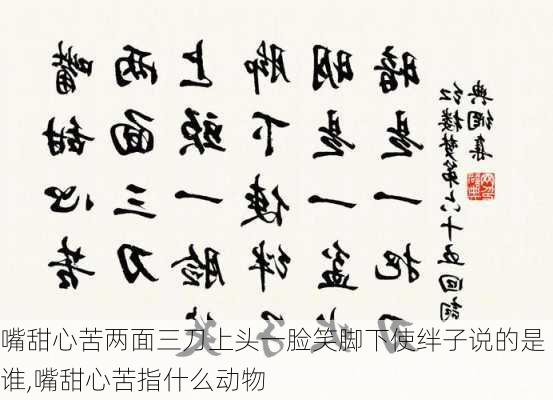 嘴甜心苦
两面三刀
上头一脸笑
脚下使绊子
明是一盆火
暗是一把刀
红楼梦第六十五回词
嘴甜心苦两面三刀上头一脸笑脚下使绊子说的是
谁,嘴甜心苦指什么动物